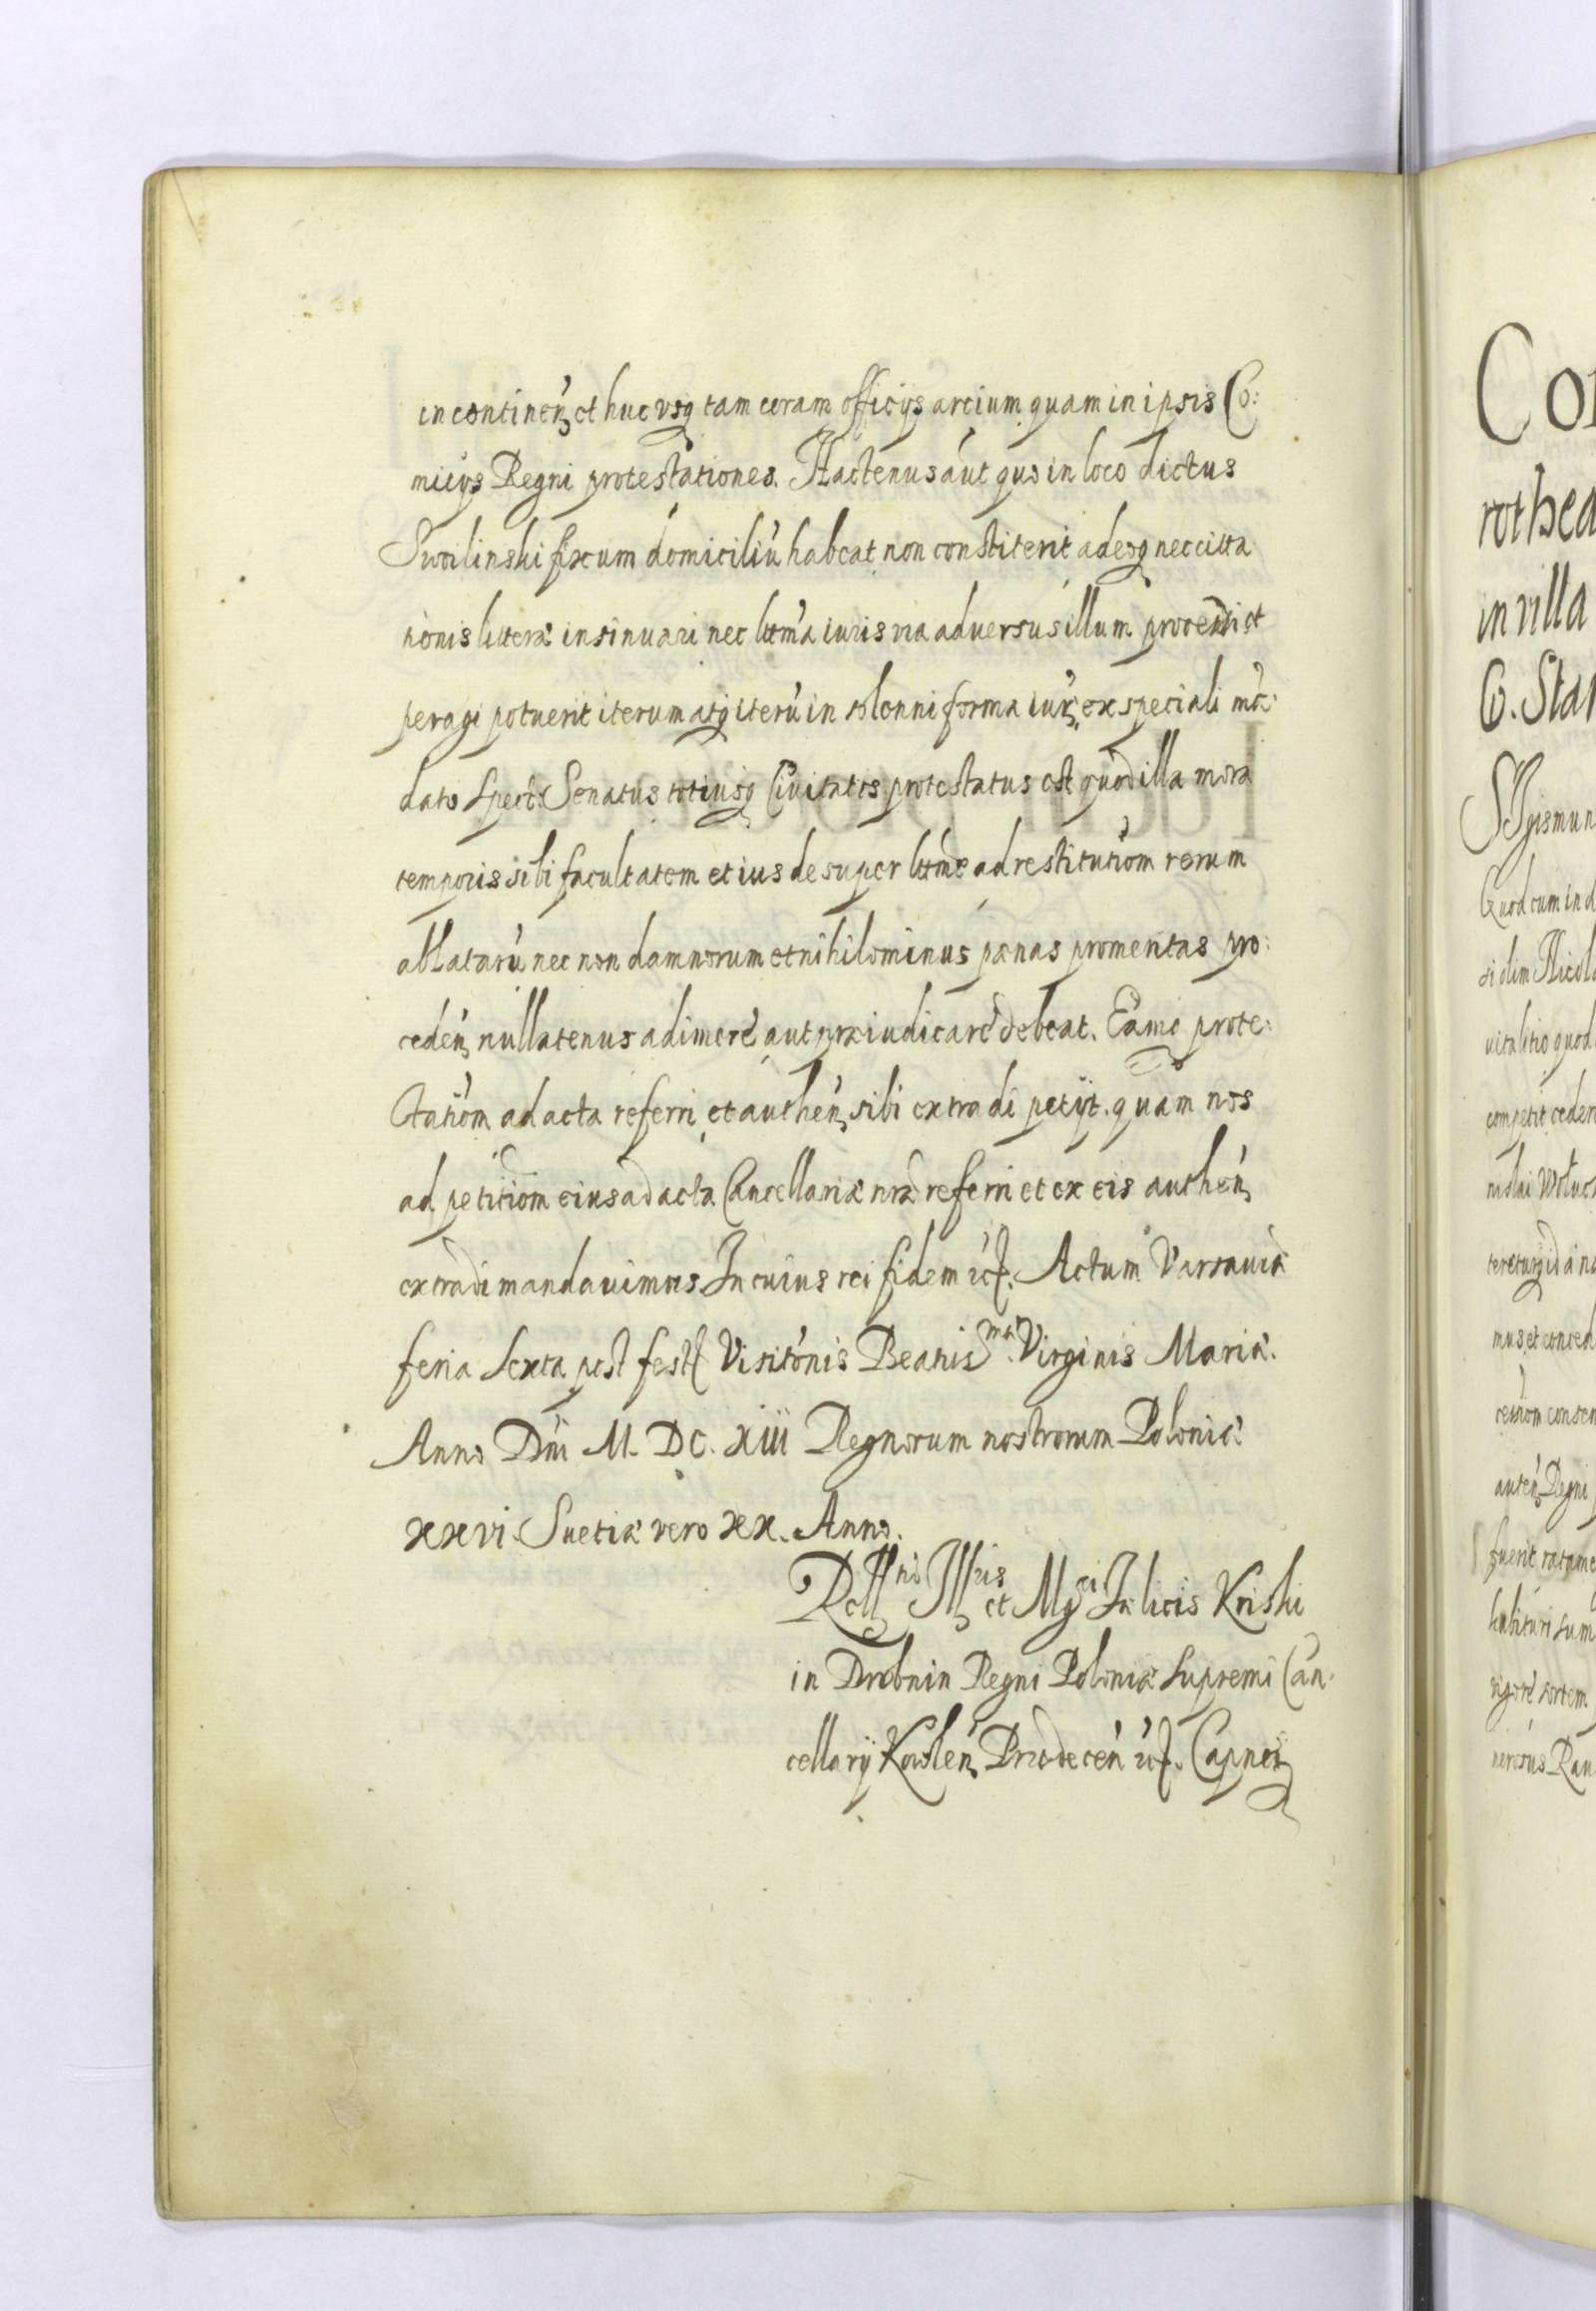 incontineń et huc usq tam coram officijs arcium quam in ipsis Co:
micijs Regni protestationes. Hactenus aut quo in loco dictus
Swilinski fixum domiciliũ habeat non constiterit adeoq nec citta
tionis litteræ insinuari nec lttma iuris via adversus illum procedi et
peragi potuerit iterum atq iterũ in solenni forma iur ex speciali mã:
dato Spect: Senatus totiusq Civitatis protestatus est quod illa mora
temporis sibi facultatem et ius desuper lttme ad restitutiom rerum
ablatarũ nec non damnorum et nihilominus pænas promeritas pro:
cedeń nullatenus adimere aut præiudicare debeat. Eamq prote:
statiom ad acta referri et autheń sibi extradi petijt. quam nos
ad petitiom eius ad acta Cancellariæ nræ referri et ex eis autheń
extradi mandavimus In cuius rei fidem etc. Actum Varsaviæ
feria sexta post fest Visitonis Beatiss mæ Virginis Mariæ.
Anno Dni M. DC. XIII Regnorum nostrorum Poloniæ
XXVI. Suetiæ vero XX. Anno.
Rell tio Ill ris et Mg ci Fælicis Kriski
in Drobnin Regni Poloniæ Supremi Can:
cellarij Kowleń etc. Capnei
Co
rothea
in villa
G. Sta
Sigismun
Quod cum in d
si olim Nicola
vitalitio quod
competit ceden
mus et conced
cessiom consen
auteń Regni
fuerit ratumq
habituri sum
vigore sortem